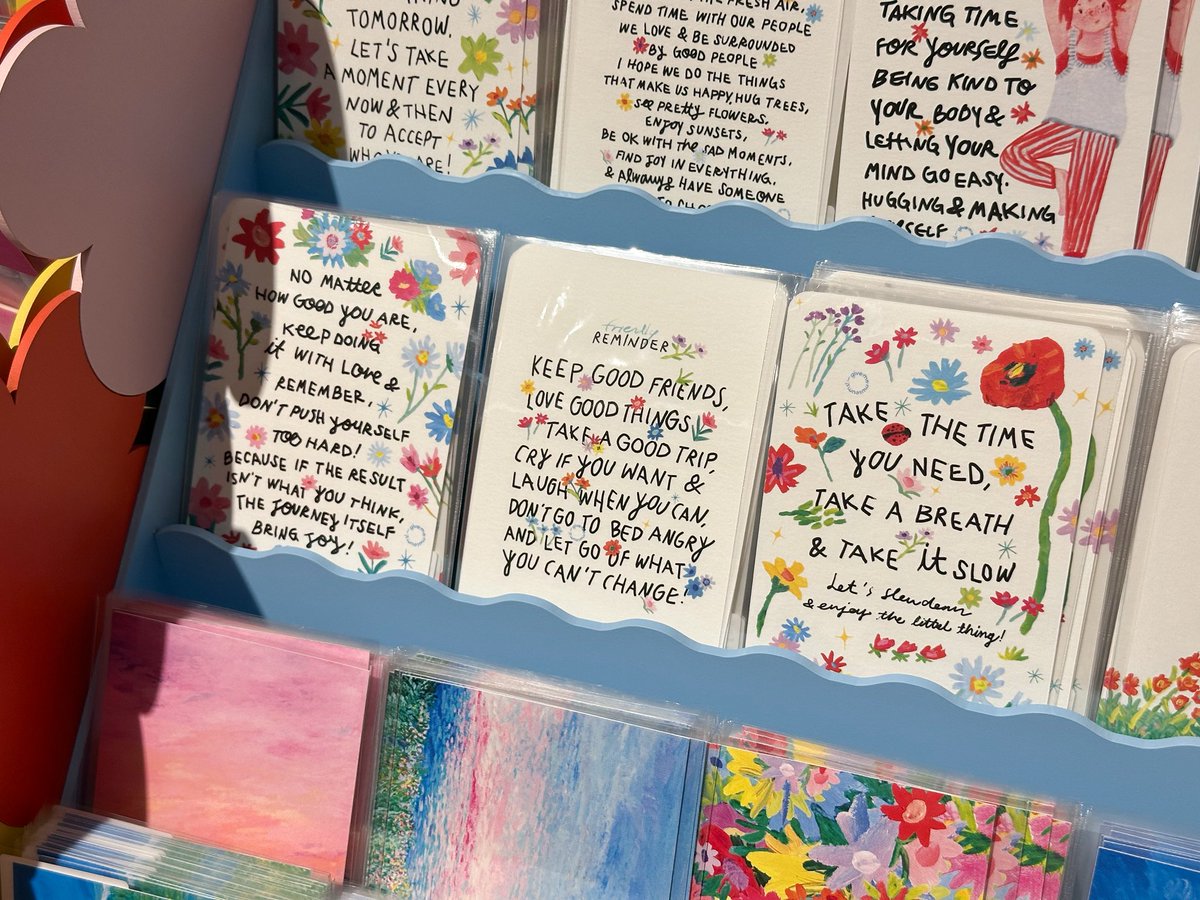 TOMORROW.
LET'S TAKE
A MOMENT EVERY
NOW & THEN
TO ACCEPT
WHO YOU ARE!
FRESH AIR,
SPEND TIME WITH OUR PEOPLE
WE LOVE & BE SURROUNDED
BY GOOD PEOPLE
I HOPE WE DO THE THINGS
THAT MAKE US HAPPY, HUG TREES,
see PREttY FLOWERS.
ENJOY SUNSETS,
BE OK WITH the SAD MOMENTS.
FIND JOY IN EVERYTHING.
& Always HAVE SOMEONE
TAKING TIME
FOR YOURSELF
BEING KIND TO
YOUR BODY &
LETTING YOUR
MIND GO EASY.
HUGGING & MAKING
NO MAtteR
HOW GOOD YOU ARE,
KEEP DOING
it WITH LOVE &
REMEMBER,
DON'T PUSH YOURSELF
TOO HARD!
BECAUSE IF THE RESULT
ISN'T WHAT YOU THINK,
THE JOURNEY ITSELF
BRING JOY!
friendly
REMINDER
KEEP GOOD FRIENDS,
LOVE GOOD THINGS
TAKE A GOOD TRIP,
CRY IF YOU WANT &
LAUGH WHEN YOU CAN,
DON'T GO TO BED ANGRY
AND LET GO OF WHAT
YOU CAN'T CHANGE!
TAKE THE TIME
YOU NEED,
TAKE A BREATH
& TAKE it SLOW
Let's slowdown
& enjoy the littel thing!